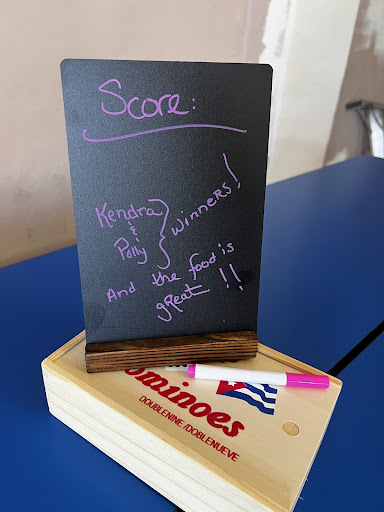 Score:
Kendra
&
Polly
Winners!
And the food is
great !!
ominoes
DOUBLENINE/DOBLENUEVE